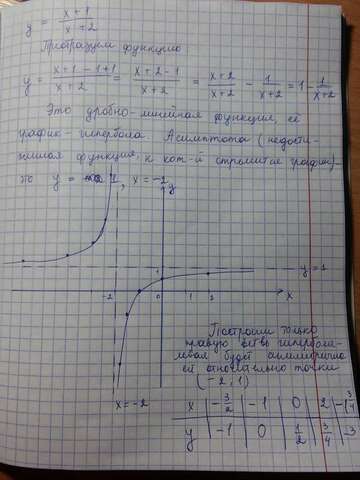 y = \frac{x+1}{x+2}
Преобразуем функцию
y = \frac{x+1-1+1}{x+2} = \frac{x+2-1}{x+2} = \frac{x+2}{x+2} - \frac{1}{x+2} = 1 - \frac{1}{x+2}
Это дробно-линейная функция, её
график - гипербола. Асимптота (недости-
жимая функция, к кот-й стремится график) -
это y = 1, x = -2
y
1
y = 1
-2 0 1 2 x
Построим только
правую ветвь гиперболы-
левая будет симметрична
ей относительно точки
(-2; 1)
x = -2
x | -\frac{3}{2} | -1 | 0 | 2 | -1\frac{3}{4}
y | -1 | 0 | \frac{1}{2} | \frac{3}{4} | -3